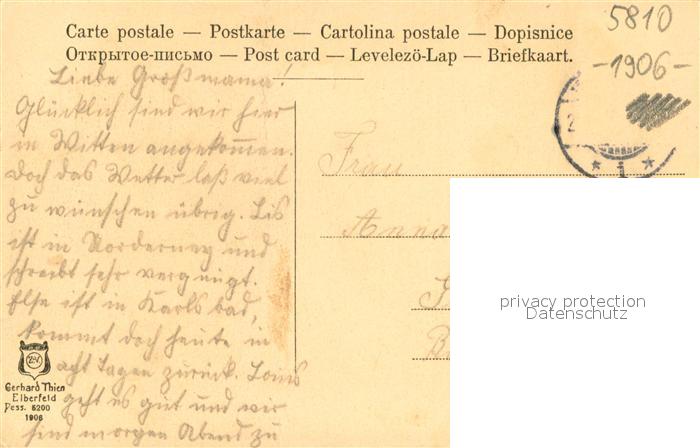 Carte postale — Postkarte — Cartolina postale — Dopisnice
Открытое-письмо — Post card — Levelezö-Lap — Briefkaart.
5810
-1906-
Liebe Großmama!
Glücklich sind wir hier
in Witten angekommen.
Doch das Wetter laß viel
zu wünschen übrig. Lis
ist in Norderney und
schreibt sehr vergnügt.
Else ist in Karlsbad,
kommt doch heute in
acht Tagen zurück. Louis
geht es gut und wir
sind morgen Abend zu
Frau
Anna
privacy protection
Datenschutz
Gerhard Thien
Elberfeld
Dess. 5200
1906